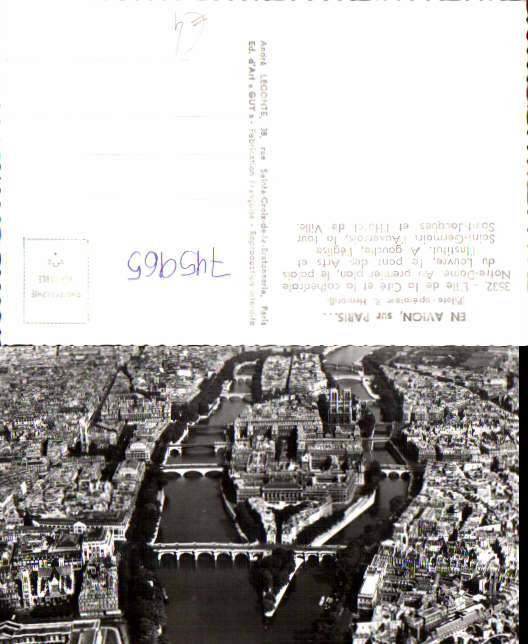 EN AVION, sur PARIS...
(Pilote opérateur R. Henrard)
3532 - L'Ile de la Cité et la cathédrale
Notre-Dame. Au premier plan, le palais
du Louvre, le pont des Arts et
l'Institut. A gauche, l'église
Saint-Germain l'Auxerrois, la tour
Saint-Jacques et l'Hôtel de Ville.
André LECONTE, 38, rue Sainte-Croix-de-la-Bretonnerie, Paris
Ed. d'Art « GUY » - Fabrication Française - Reproduction interdite
745965